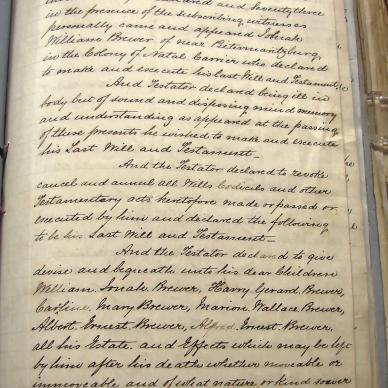 and Seventy three
in the presence of the subscribing witnesses
personally came and appeared
William Brewer of near Pietermaritzburg
in the Colony of Natal Carrier who declared
to make and execute his last Will and Testament
And Testator declared being ill in
body but of sound and disposing mind memory
and understanding as appeared at the passing
of these presents he wished to make and execute
his Last Will and Testament—
And the Testator declared to revoke
cancel and annul all Wills Codicils and other
Testamentary acts heretofore made or passed or
executed by him and declared the following
to be his Last Will and Testament—
And the Testator declared to give
devise and bequeath unto his dear Children
William Brewer, Harry Gerard Brewer,
Caroline Mary Brewer, Marion Wallace Brewer,
Albert Ernest Brewer, Alfred Ernest Brewer
all his Estate and Effects which may be left
by him after his death whether moveable or
immoveable and of what nature or kind soever